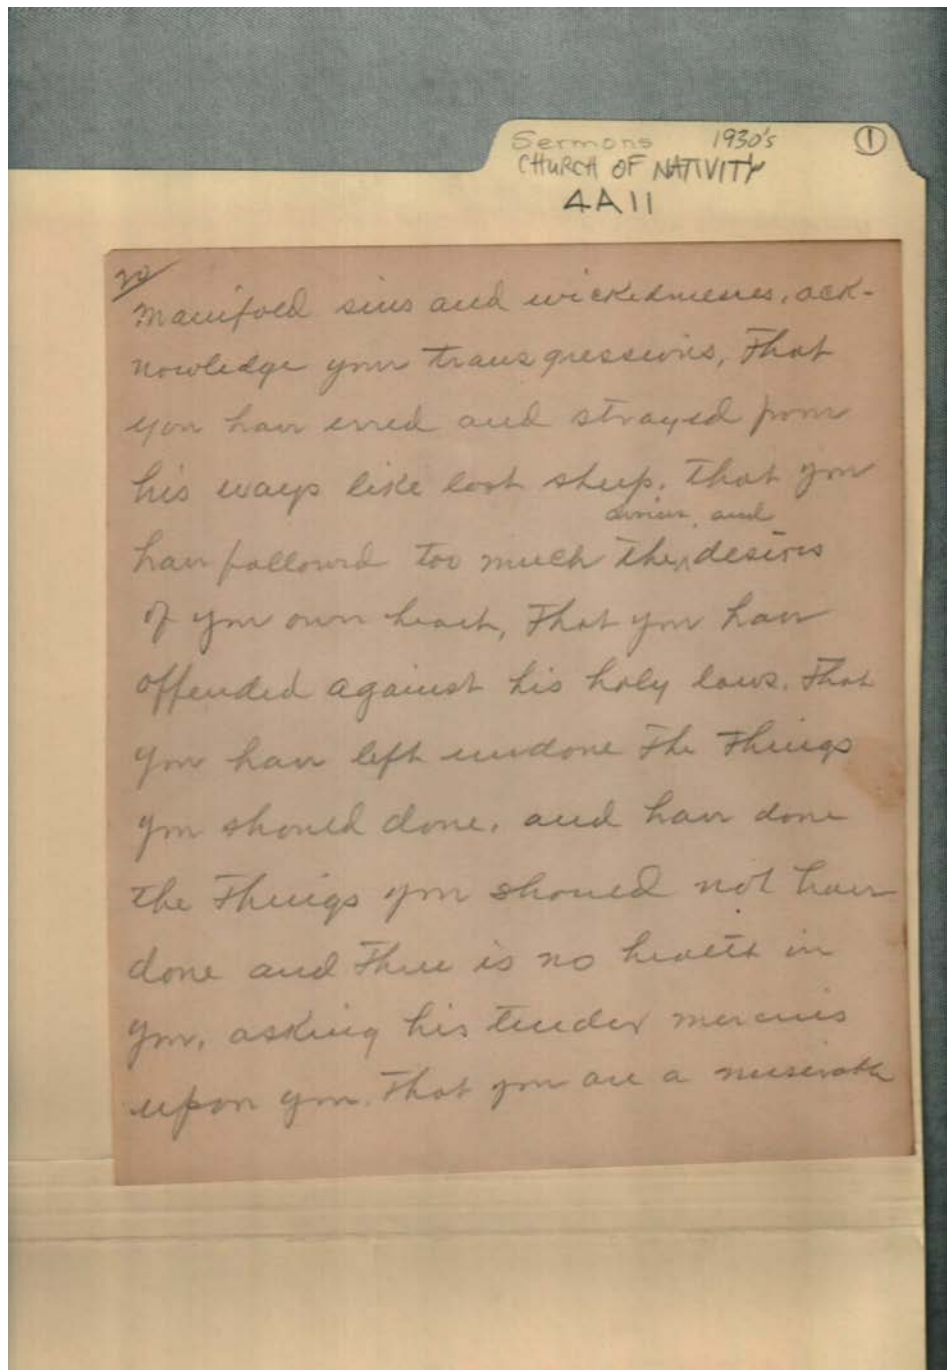 Sermons 1930's ①
CHURCH OF NATIVITY
4A11
20
Manifold sins and wickednesses, ack-
nowledge your transgressions, That
you have erred and strayed from
his ways like lost sheep. That you
and
have followed too much the desires
of your own heart, That you have
offended against his holy laws. That
you have left undone The Things
you should done, and have done
the Things you should not have
done and There is no health in
you, asking his tender mercies
upon you. That you are a miserable